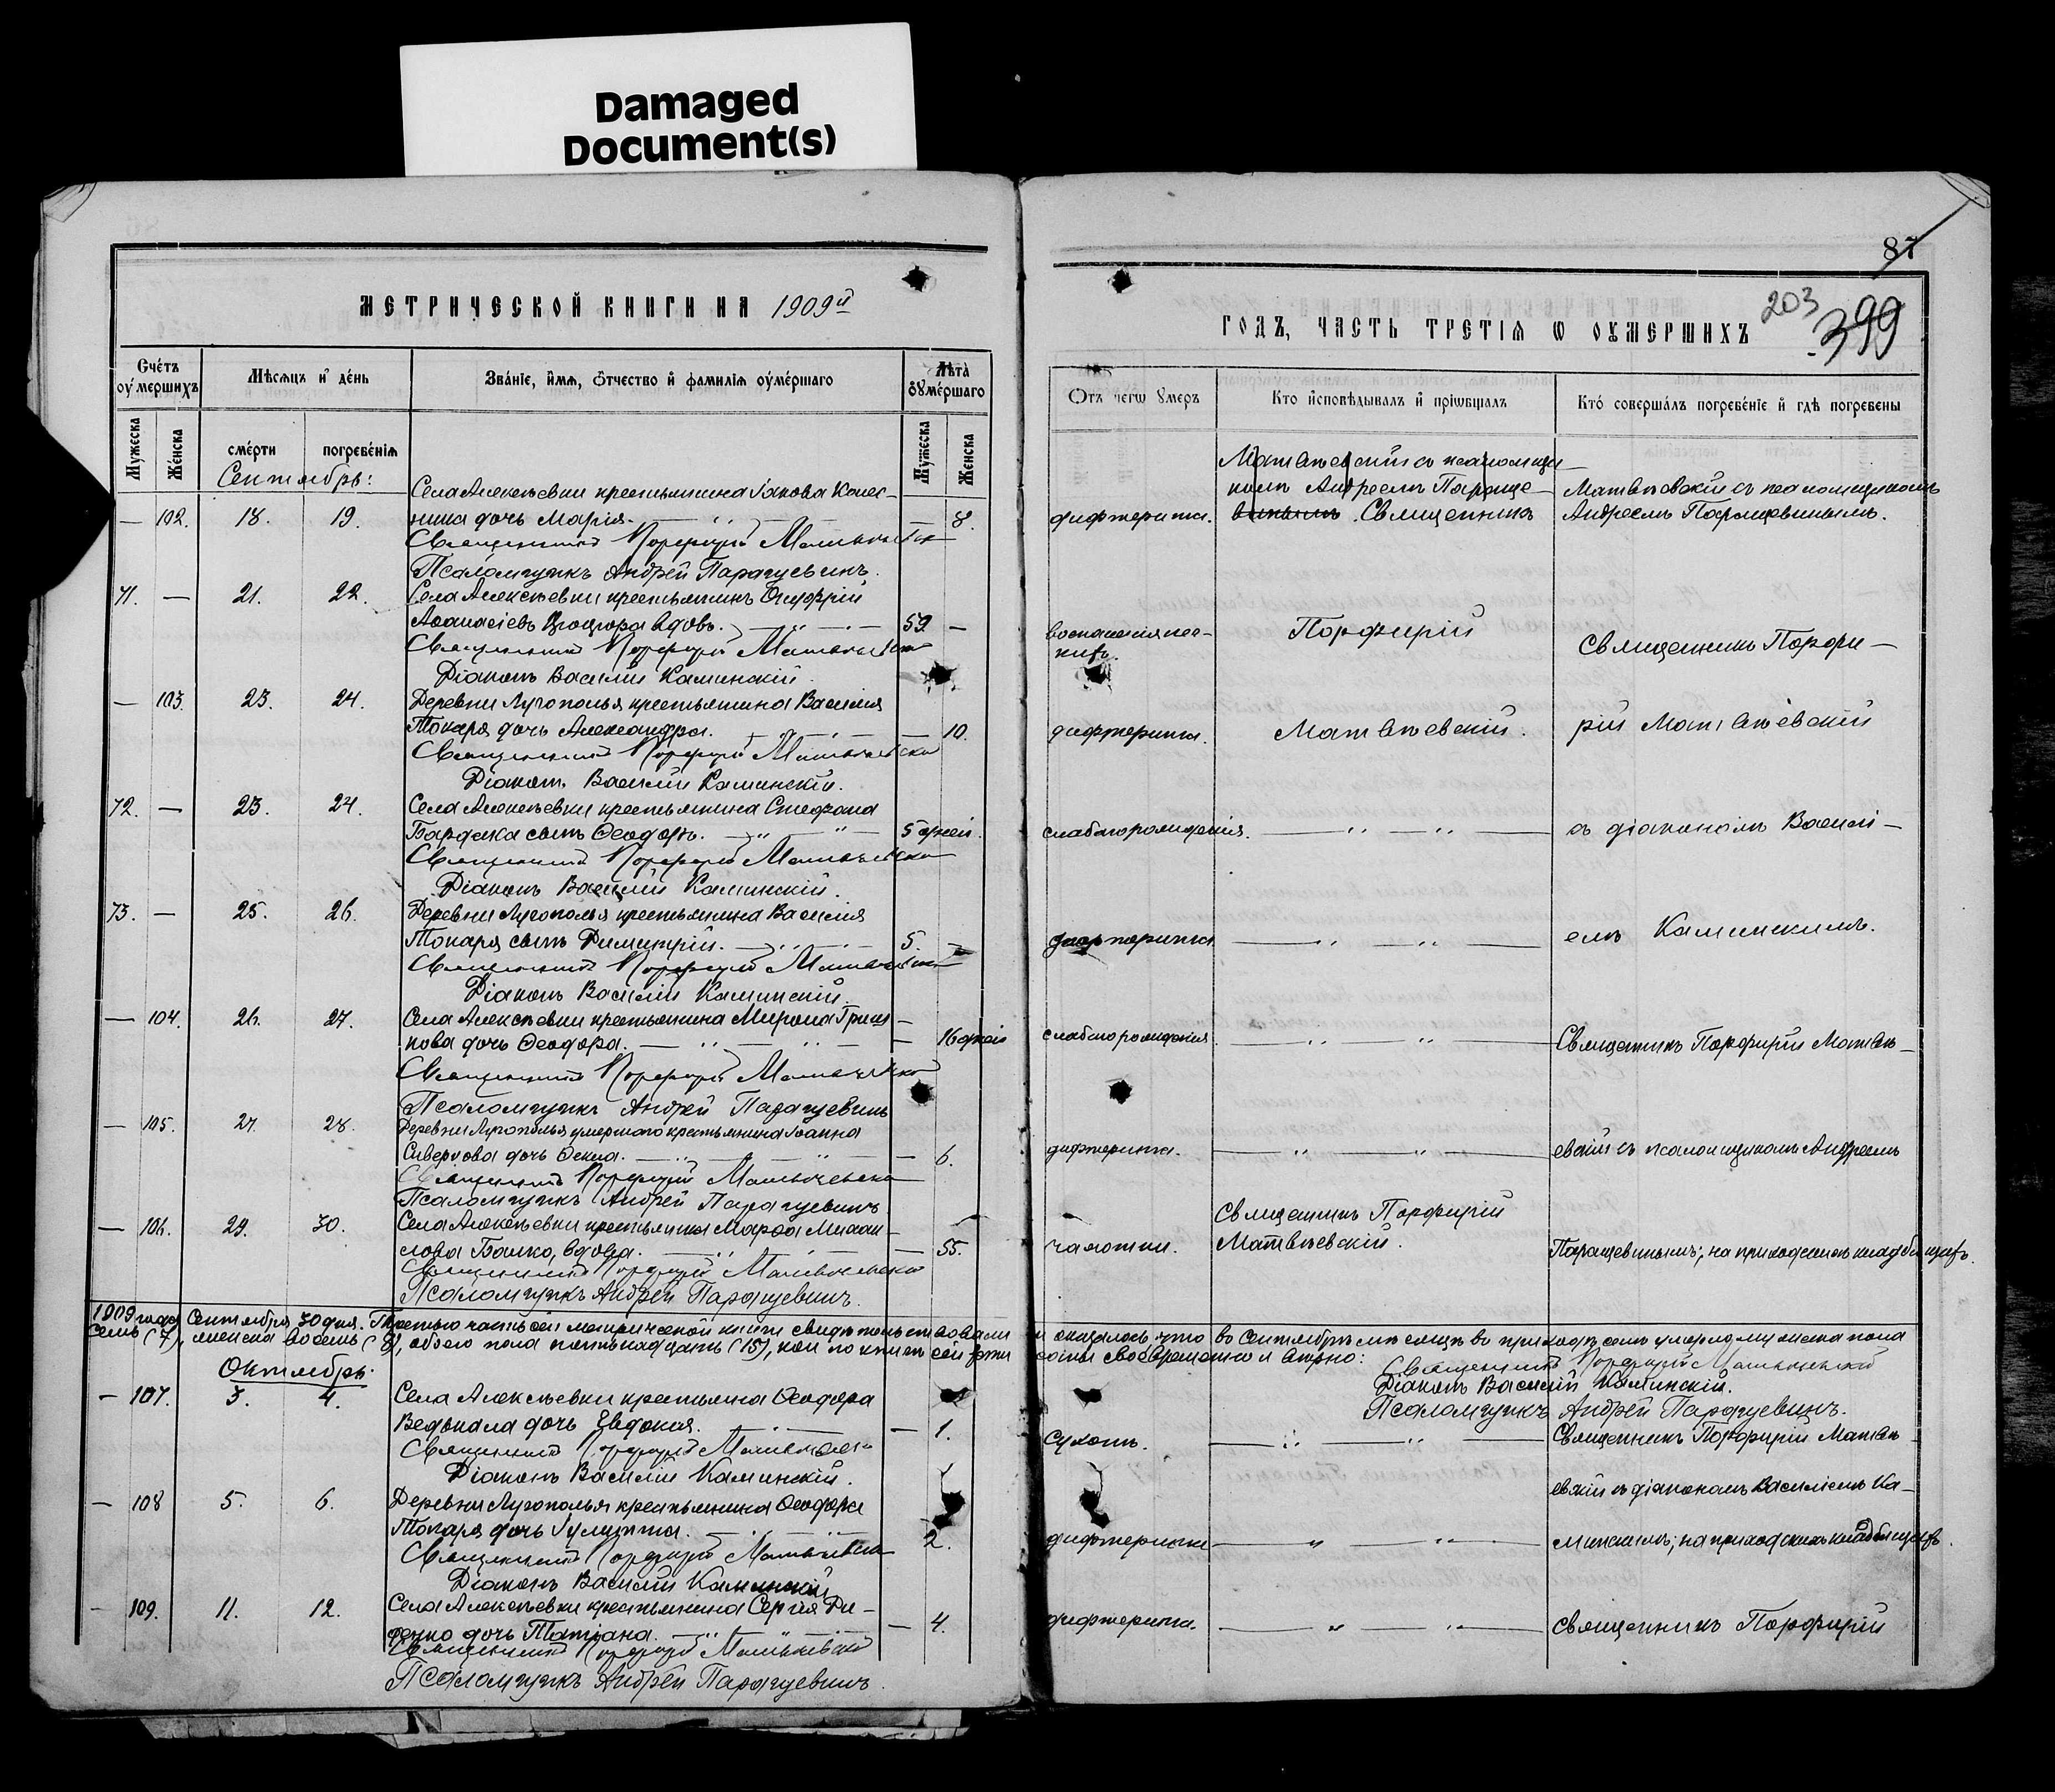 Damaged
Document(s)
МЕТРИЧЕСКОЙ КНИГИ НА 1909й
Счетъ оумершихъ
Мѣсяцъ и день
Званіе, имя, отчество и фамилія оумершаго
Лѣта оумершаго
Мужеска
Женска
смерти
погребенія
Мужеска
Женска
Сентябрь:
Села Алексѣевки крестьянина Іакова Колес-
— 102. 18. 19. ника дочь Марія. — 8.
Священникъ Порфирій Матвѣевскій
Псаломщикъ Андрей Паращевинъ.
71. — 21. 22. Села Алексѣевки крестьянинъ
Аѳанасіевъ вдовъ. 59 —
Священникъ Порфирій Матвѣевскій
Діаконъ Василій Каминскій.
— 103. 23. 24. Деревни Лугополья крестьянина Василія
Токаря дочь Александра. — 10.
Священникъ Порфирій Матвѣевскій
Діаконъ Василій Каминскій.
72. — 23. 24. Села Алексѣевки крестьянина Стефана
сынъ Ѳеодоръ. 5 дней.
Священникъ Порфирій Матвѣевскій
Діаконъ Василій Каминскій.
73. — 25. 26. Деревни Лугополья крестьянина Василія
Токаря сынъ Димитрій. 5. —
Священникъ Порфирій Матвѣевскій
Діаконъ Василій Каминскій.
— 104. 26. 27. Села Алексѣевки крестьянина Мирона Гриц-
кова дочь Ѳеодора. — 16 дней
Священникъ Порфирій Матвѣевскій
Псаломщикъ Андрей Паращевинъ
— 105. 27. 28. Деревни Лугополья умершаго крестьянина Іоанна
дочь Ѳекла. — 6.
Священникъ Порфирій Матвѣевскій
Псаломщикъ Андрей Паращевинъ
— 106. 29. 30. Села Алексѣевки Марѳа Михаи-
лова вдова. — 55.
Священникъ Порфирій Матвѣевскій
Псаломщикъ Андрей Паращевинъ.
1909 года Сентября 30 дня. Третью часть сей метрической книги свидѣтельствовали
семь (7), женска восемь (8), обоего пола пятнадцать (15), кои по книгѣ сей
Октябрь:
— 107. 3. 4. Села Алексѣевки крестьянина Ѳеодора
дочь Евдокія. — 1.
Священникъ Порфирій Матвѣевскій
Діаконъ Василій Каминскій.
— 108 5. 6. Деревни Лугополья крестьянина Ѳеодора
Токаря дочь Іулитта. 2.
Священникъ Порфирій Матвѣевскій
Діаконъ Василій Каминскій
— 109. 11. 12. Села Алексѣевки крестьянина Сергія Ди-
денко дочь Татіана. — 4.
Священникъ Порфирій Матвѣевскій
Псаломщикъ Андрей Паращевинъ.
87
203
399
ГОДЪ, ЧАСТЬ ТРЕТІЯ Ѡ ОУМЕРШИХЪ
Отъ чегѡ умеръ
Кто исповѣдывалъ и пріѡбщалъ
Кто совершалъ погребеніе и гдѣ погребены
Матвѣевскій съ псаломщи-
комъ Андреемъ Параще-
винымъ. Священникъ
Матвѣевскій съ псаломщикомъ
дифтерита.
Андреемъ Паращевинымъ.
воспаленія лег-
кихъ.
Порфирій
Священникъ Порфи-
дифтерита.
Матвѣевскій.
рій Матвѣевскій
слаборожденія.
съ діакономъ Василі-
дифтерита
емъ Каминскимъ.
слаборожденія
Священникъ Порфирій Матвѣ-
дифтерита.
евскій съ псаломщикомъ Андреемъ
Священникъ Порфирій
чахотки.
Матвѣевскій.
Паращевинымъ; на приходскомъ кладбищѣ.
и оказалось что въ Сентябрѣ мѣсяцѣ въ приходѣ семъ умерло мужеска пола
своевременно и вѣрно:
Священникъ Порфирій Матвѣевскій
Діаконъ Василій Каминскій.
Псаломщикъ Андрей Паращевинъ.
сухотъ.
Священникъ Порфирій Матвѣ-
евскій съ діакономъ Василіемъ Ка-
дифтерита
минскимъ; на приходскомъ кладбищѣ.
дифтерита.
Священникъ Порфирій